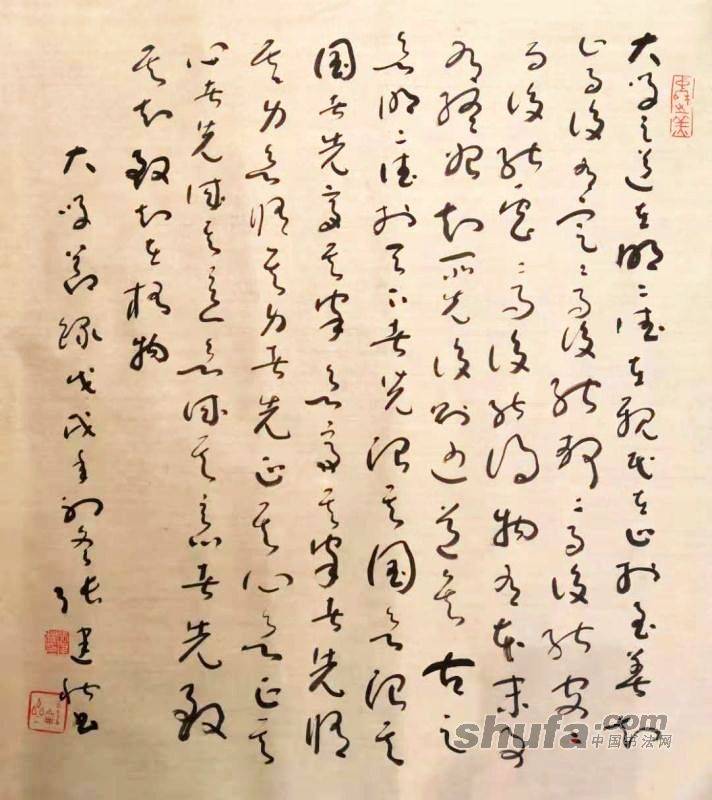 大学之道在明〻德在親民在止於至善知
止而後有定〻而後能静〻而後能安〻
而後能慮〻而後能得物有本末事
有終始知所先後則近道矣古之
欲明〻德於天下者先治其国欲治其
国者先齐其家欲齐其家者先脩
其身欲脩其身者先正其心欲正其
心者先诚其意欲诚其意者先致
其知致知在格物
大学節録戊戌年初冬张建书
shufa.com
中国书法网